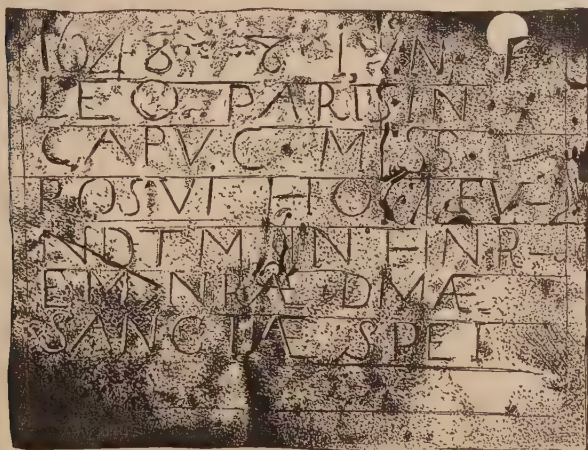 1648 · 8 IVN · F
LEO · PARIS · IN
CAPVC · MISS ·
POSVI HOC FV-
NDTM IN HNR-
EM NRÆ DMÆ
SANCTÆ SPEI